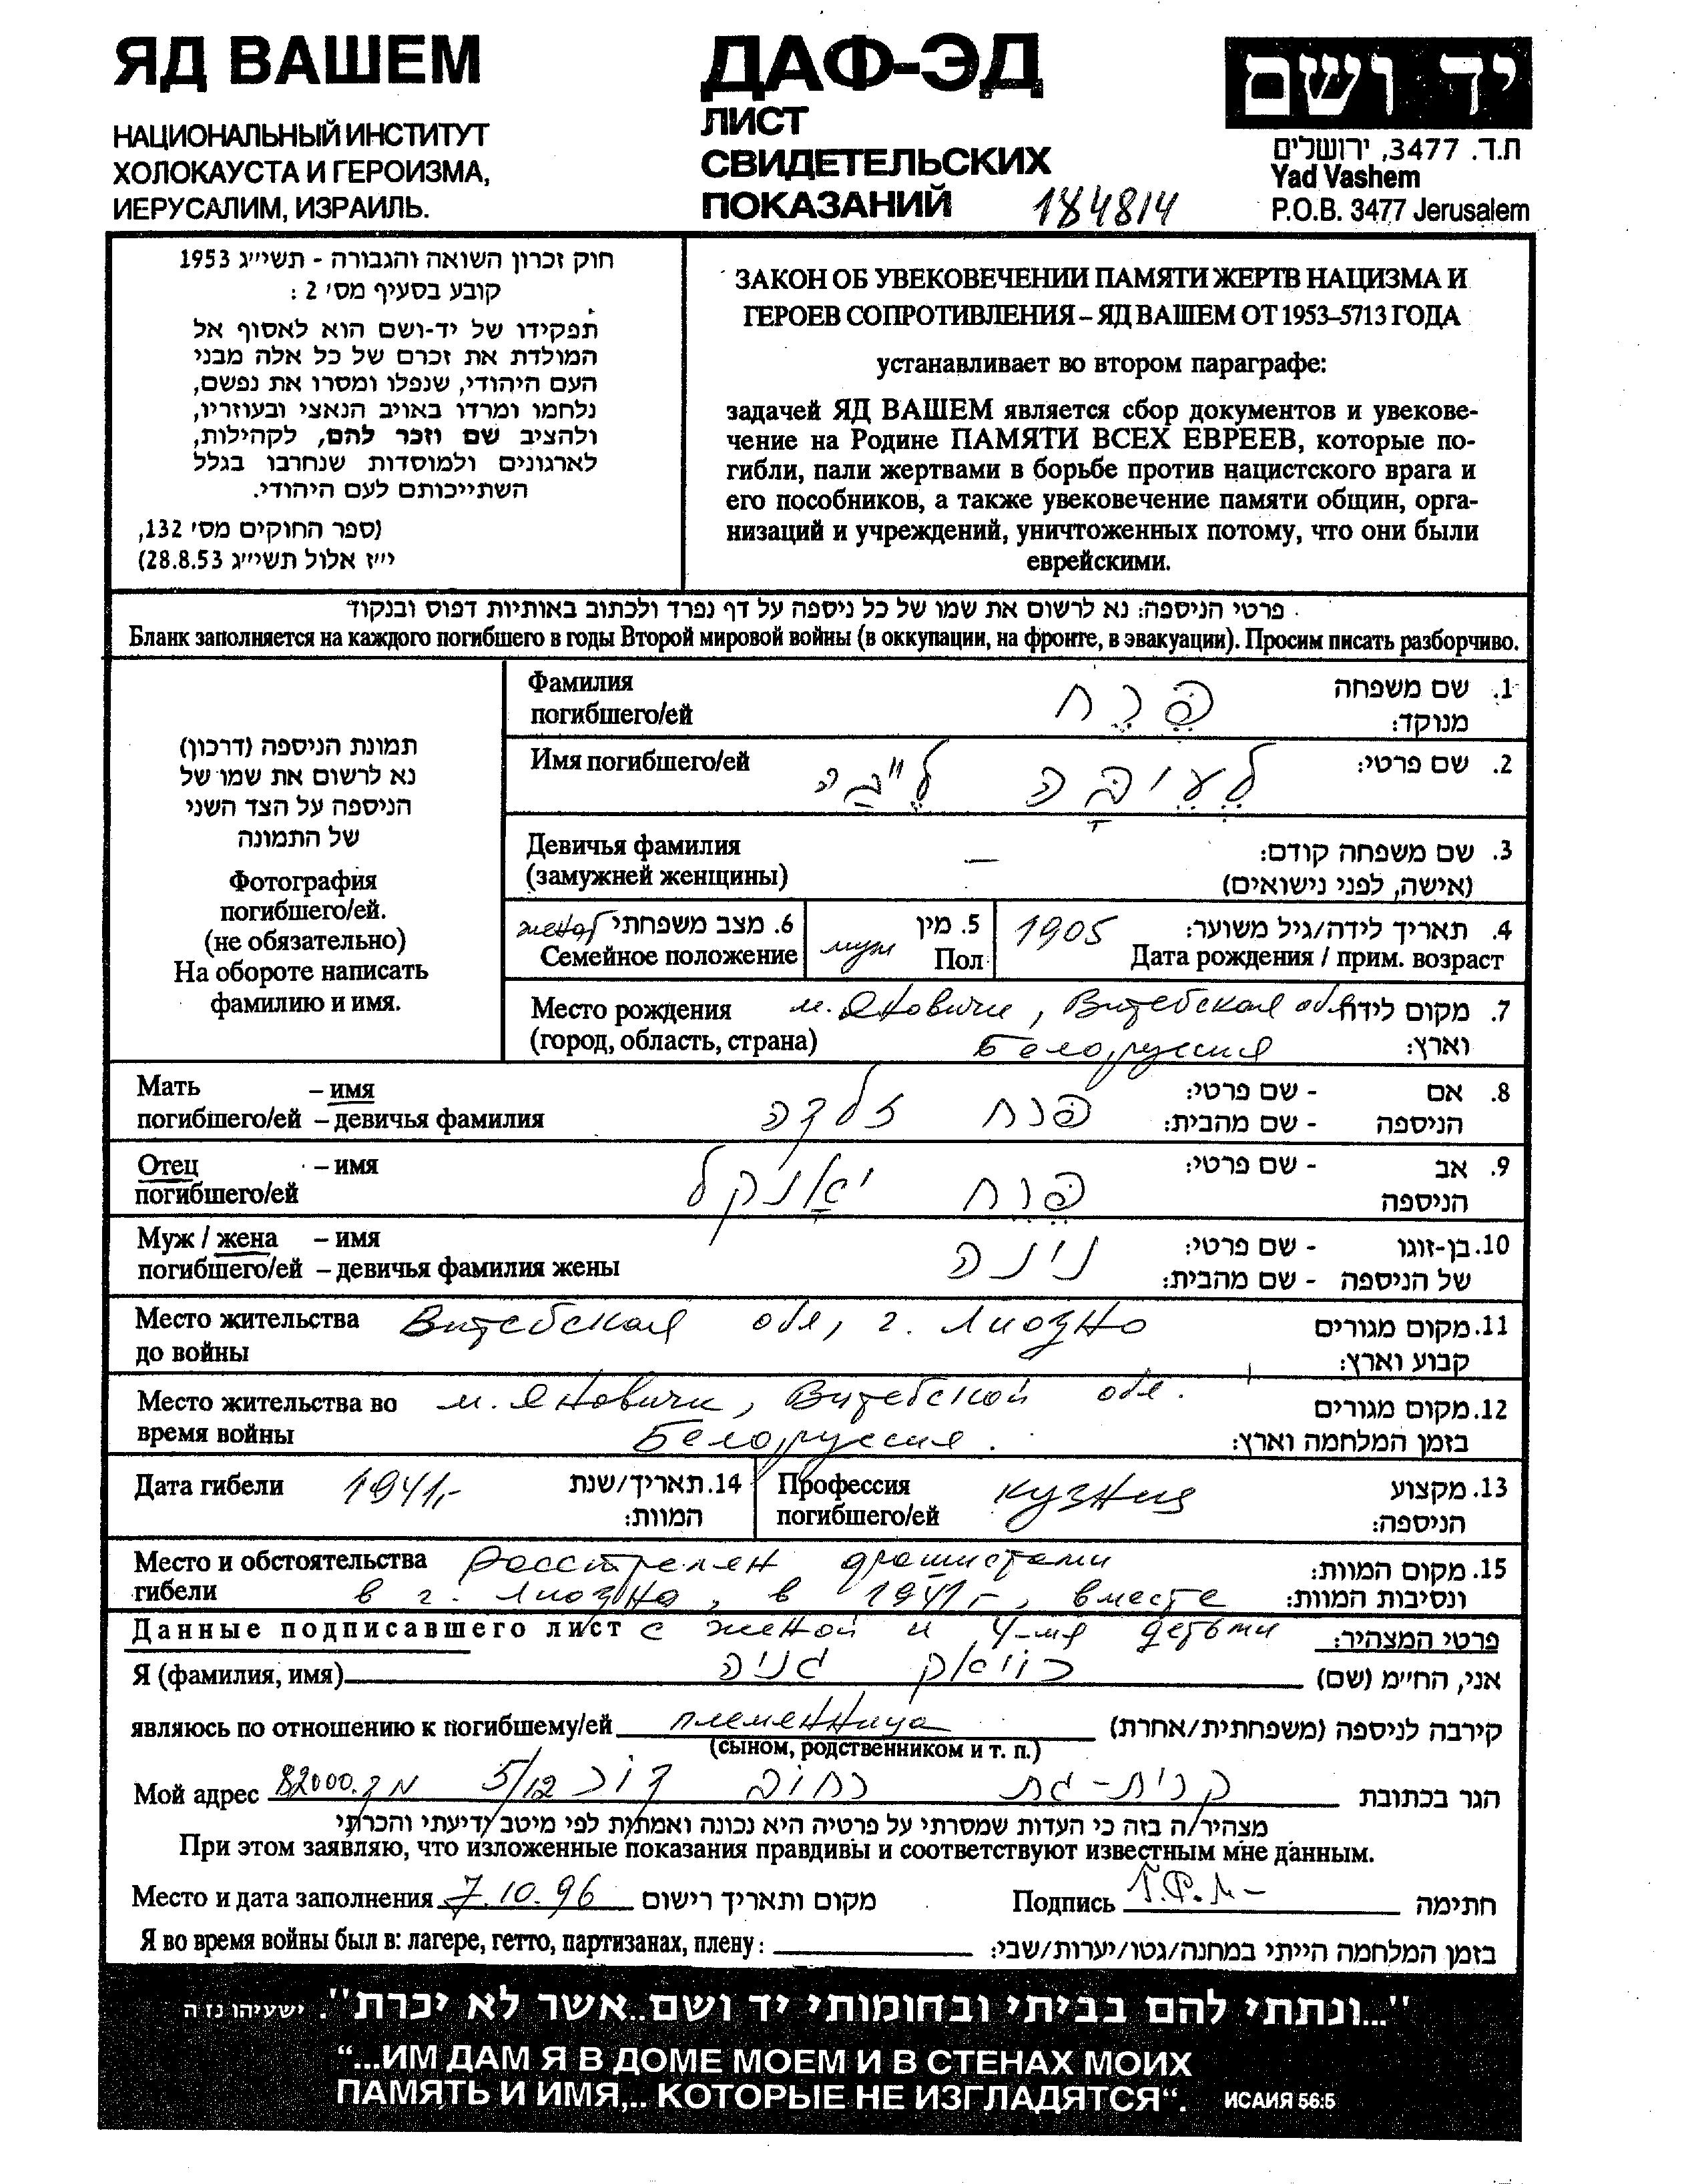 ЯД ВАШЕМ
НАЦИОНАЛЬНЫЙ ИНСТИТУТ
ХОЛОКАУСТА И ГЕРОИЗМА,
ИЕРУСАЛИМ, ИЗРАИЛЬ.
ДАФ-ЭД
ЛИСТ
СВИДЕТЕЛЬСКИХ
ПОКАЗАНИЙ 184814
יד ושם
ת.ד. 3477, ירושלים
Yad Vashem
P.O.B. 3477 Jerusalem
חוק זכרון השואה והגבורה - תשי״ג 1953
קובע בסעיף מס׳ 2 :
תפקידו של יד-ושם הוא לאסוף אל
המולדת את זכרם של כל אלה מבני
העם היהודי, שנפלו ומסרו את נפשם,
נלחמו ומרדו באויב הנאצי ובעוזריו,
ולהציב שם וזכר להם, לקהילות,
לארגונים ולמוסדות שנחרבו בגלל
השתייכותם לעם היהודי.
(ספר החוקים מס׳ 132,
י״ז אלול תשי״ג 28.8.53)
ЗАКОН ОБ УВЕКОВЕЧЕНИИ ПАМЯТИ ЖЕРТВ НАЦИЗМА И
ГЕРОЕВ СОПРОТИВЛЕНИЯ – ЯД ВАШЕМ ОТ 1953–5713 ГОДА
устанавливает во втором параграфе:
задачей ЯД ВАШЕМ является сбор документов и увекове-
чение на Родине ПАМЯТИ ВСЕХ ЕВРЕЕВ, которые по-
гибли, пали жертвами в борьбе против нацистского врага и
его пособников, а также увековечение памяти общин, орга-
низаций и учреждений, уничтоженных потому, что они были
еврейскими.
פרטי הניספה: נא לרשום את שמו של כל ניספה על דף נפרד ולכתוב באותיות דפוס ובנקוד
Бланк заполняется на каждого погибшего в годы Второй мировой войны (в оккупации, на фронте, в эвакуации). Просим писать разборчиво.
תמונת הניספה (דרכון)
נא לרשום את שמו של
הניספה על הצד השני
של התמונה
Фотография
погибшего/ей.
(не обязательно)
На обороте написать
фамилию и имя.
Фамилия
погибшего/ей
1. שם משפחה
מנוקד:
Имя погибшего/ей
2. שם פרטי:
Девичья фамилия
(замужней женщины)
—
3. שם משפחה קודם:
(אישה, לפני נישואים)
6. מצב משפחתי женат
Семейное положение
5. מין
муж Пол
4. תאריך לידה/גיל משוער: 1905
Дата рождения / прим. возраст
Место рождения м. Яновичи, Витебская обл 7. מקום לידה
(город, область, страна) Белоруссия וארץ:
Мать – имя
погибшего/ей – девичья фамилия
8. אם - שם פרטי:
הניספה - שם מהבית:
Отец – имя
погибшего/ей
9. אב - שם פרטי:
הניספה
יאנקל
Муж / жена – имя
погибшего/ей – девичья фамилия жены
10. בן-זוגו - שם פרטי:
של הניספה - שם מהבית:
נינה
Место жительства Витебская обл, г. Лиозно 11. מקום מגורים
до войны קבוע וארץ:
Место жительства во м. Яновичи, Витебской обл. 12. מקום מגורים
время войны Белоруссия. בזמן המלחמה וארץ:
Дата гибели 1941,- 14. תאריך/שנת
המוות:
Профессия кузнец 13. מקצוע
погибшего/ей הניספה:
Место и обстоятельства Расстрелян фашистами 15. מקום המוות:
гибели в г. Лиозно, в 1941г, вместе ונסיבות המוות:
Данные подписавшего лист с женой и 4-мя детьми פרטי המצהיר:
Я (фамилия, имя) אני, החי״מ (שם)
являюсь по отношению к погибшему/ей племенница קירבה לניספה (משפחתית/אחרת)
(сыном, родственником и т. п.)
Мой адрес 82000 5/12 רחוב קרית-גת הגר בכתובת
מצהיר/ה בזה כי העדות שמסרתי על פרטיה היא נכונה ואמתית לפי מיטב ידיעתי והכרתי
При этом заявляю, что изложенные показания правдивы и соответствуют известным мне данным.
Место и дата заполнения 7.10.96 מקום ותאריך רישום
Подпись חתימה
Я во время войны был в: лагере, гетто, партизанах, плену: בזמן המלחמה הייתי במחנה/גטו/יערות/שבי:
"...ונתתי להם בביתי ובחומותי יד ושם..אשר לא יכרת". ישעיהו נז ה
“...ИМ ДАМ Я В ДОМЕ МОЕМ И В СТЕНАХ МОИХ
ПАМЯТЬ И ИМЯ,.. КОТОРЫЕ НЕ ИЗГЛАДЯТСЯ“. ИСАИЯ 56:5